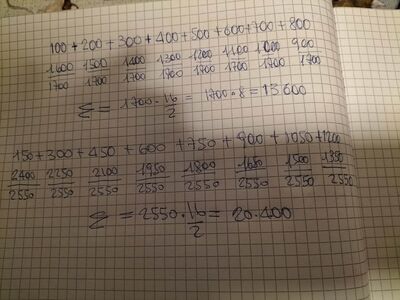 100 + 200 + 300 + 400 + 500 + 600 + 700 + 800
1600 1500 1400 1300 1200 1100 1000 900
1700 1700 1700 1700 1700 1700 1700 1700
Σ = 1700 · 16/2 = 1700 · 8 = 13600
150 + 300 + 450 + 600 + 750 + 900 + 1050 + 1200
2400 2250 2100 1950 1800 1650 1500 1350
2550 2550 2550 2550 2550 2550 2550 2550
Σ = 2550 · 16/2 = 20.400